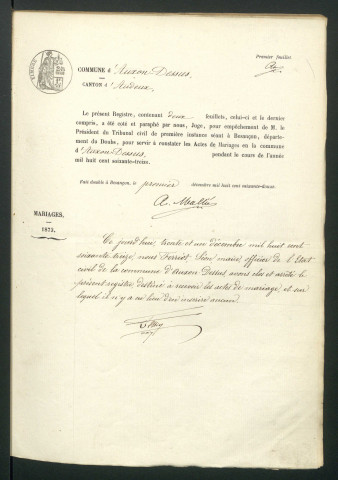 Premier feuillet
COMMUNE d'Auxon-Dessus,
CANTON d'Audeux.
Le présent Registre, contenant deux feuillets, celui-ci et le dernier
compris, a été coté et paraphé par nous, Juge, pour empêchement de M. le
Président du Tribunal civil de première instance séant à Besançon, départe-
ment du Doubs, pour servir à constater les Actes de Mariages en la commune
d'Auxon-Dessus, pendant le cours de l'année
mil huit cent soixante-treize.
Fait double à Besançon, le premier décembre mil huit cent soixante-douze.
MARIAGES.
1873.
Ce jourd'hui trente et un décembre mil huit cent
soixante treize, nous Ferriot maire, officier de l'Etat
civil de la commune d'Auxon Dessus avons clos et arrêté le
présent registre destiné à recevoir les actes de mariage, et sur
lequel il n'y a eu lieu d'en inscrire aucun.